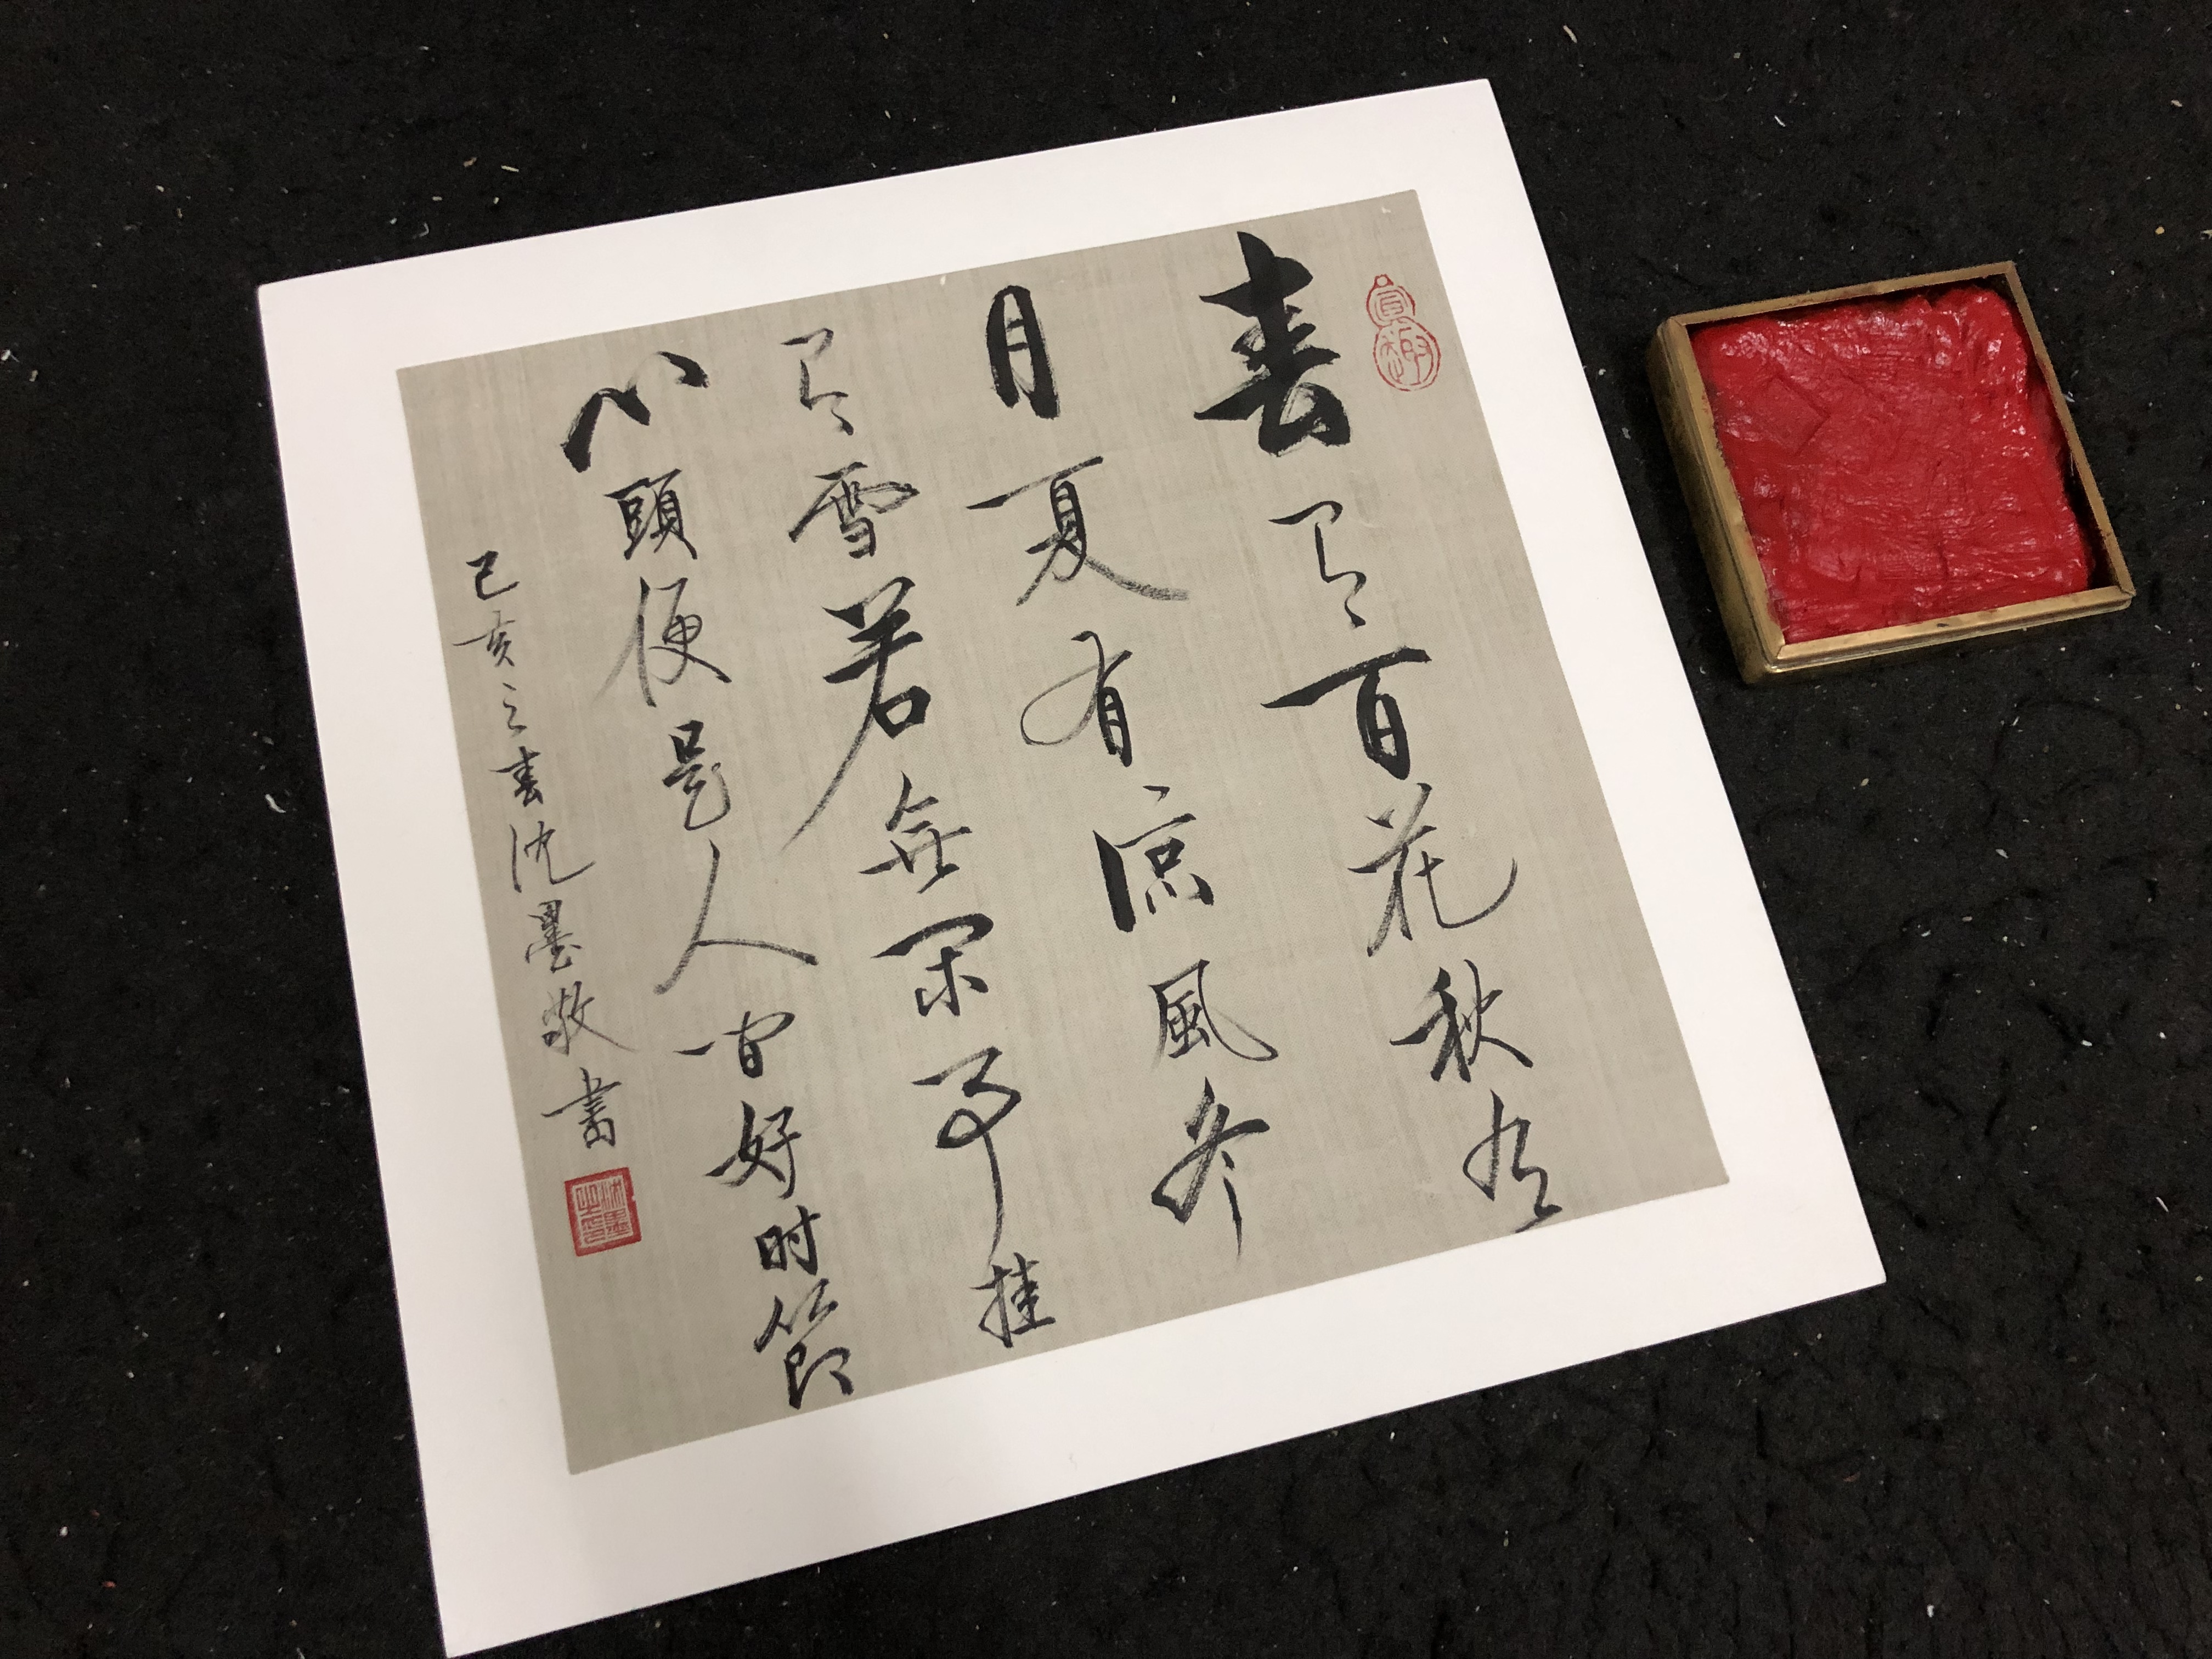 春有百花秋有
月夏有涼風冬
有雪若無閑事挂
心頭便是人间好时節
己亥之春沈墨敬書
沈墨之印